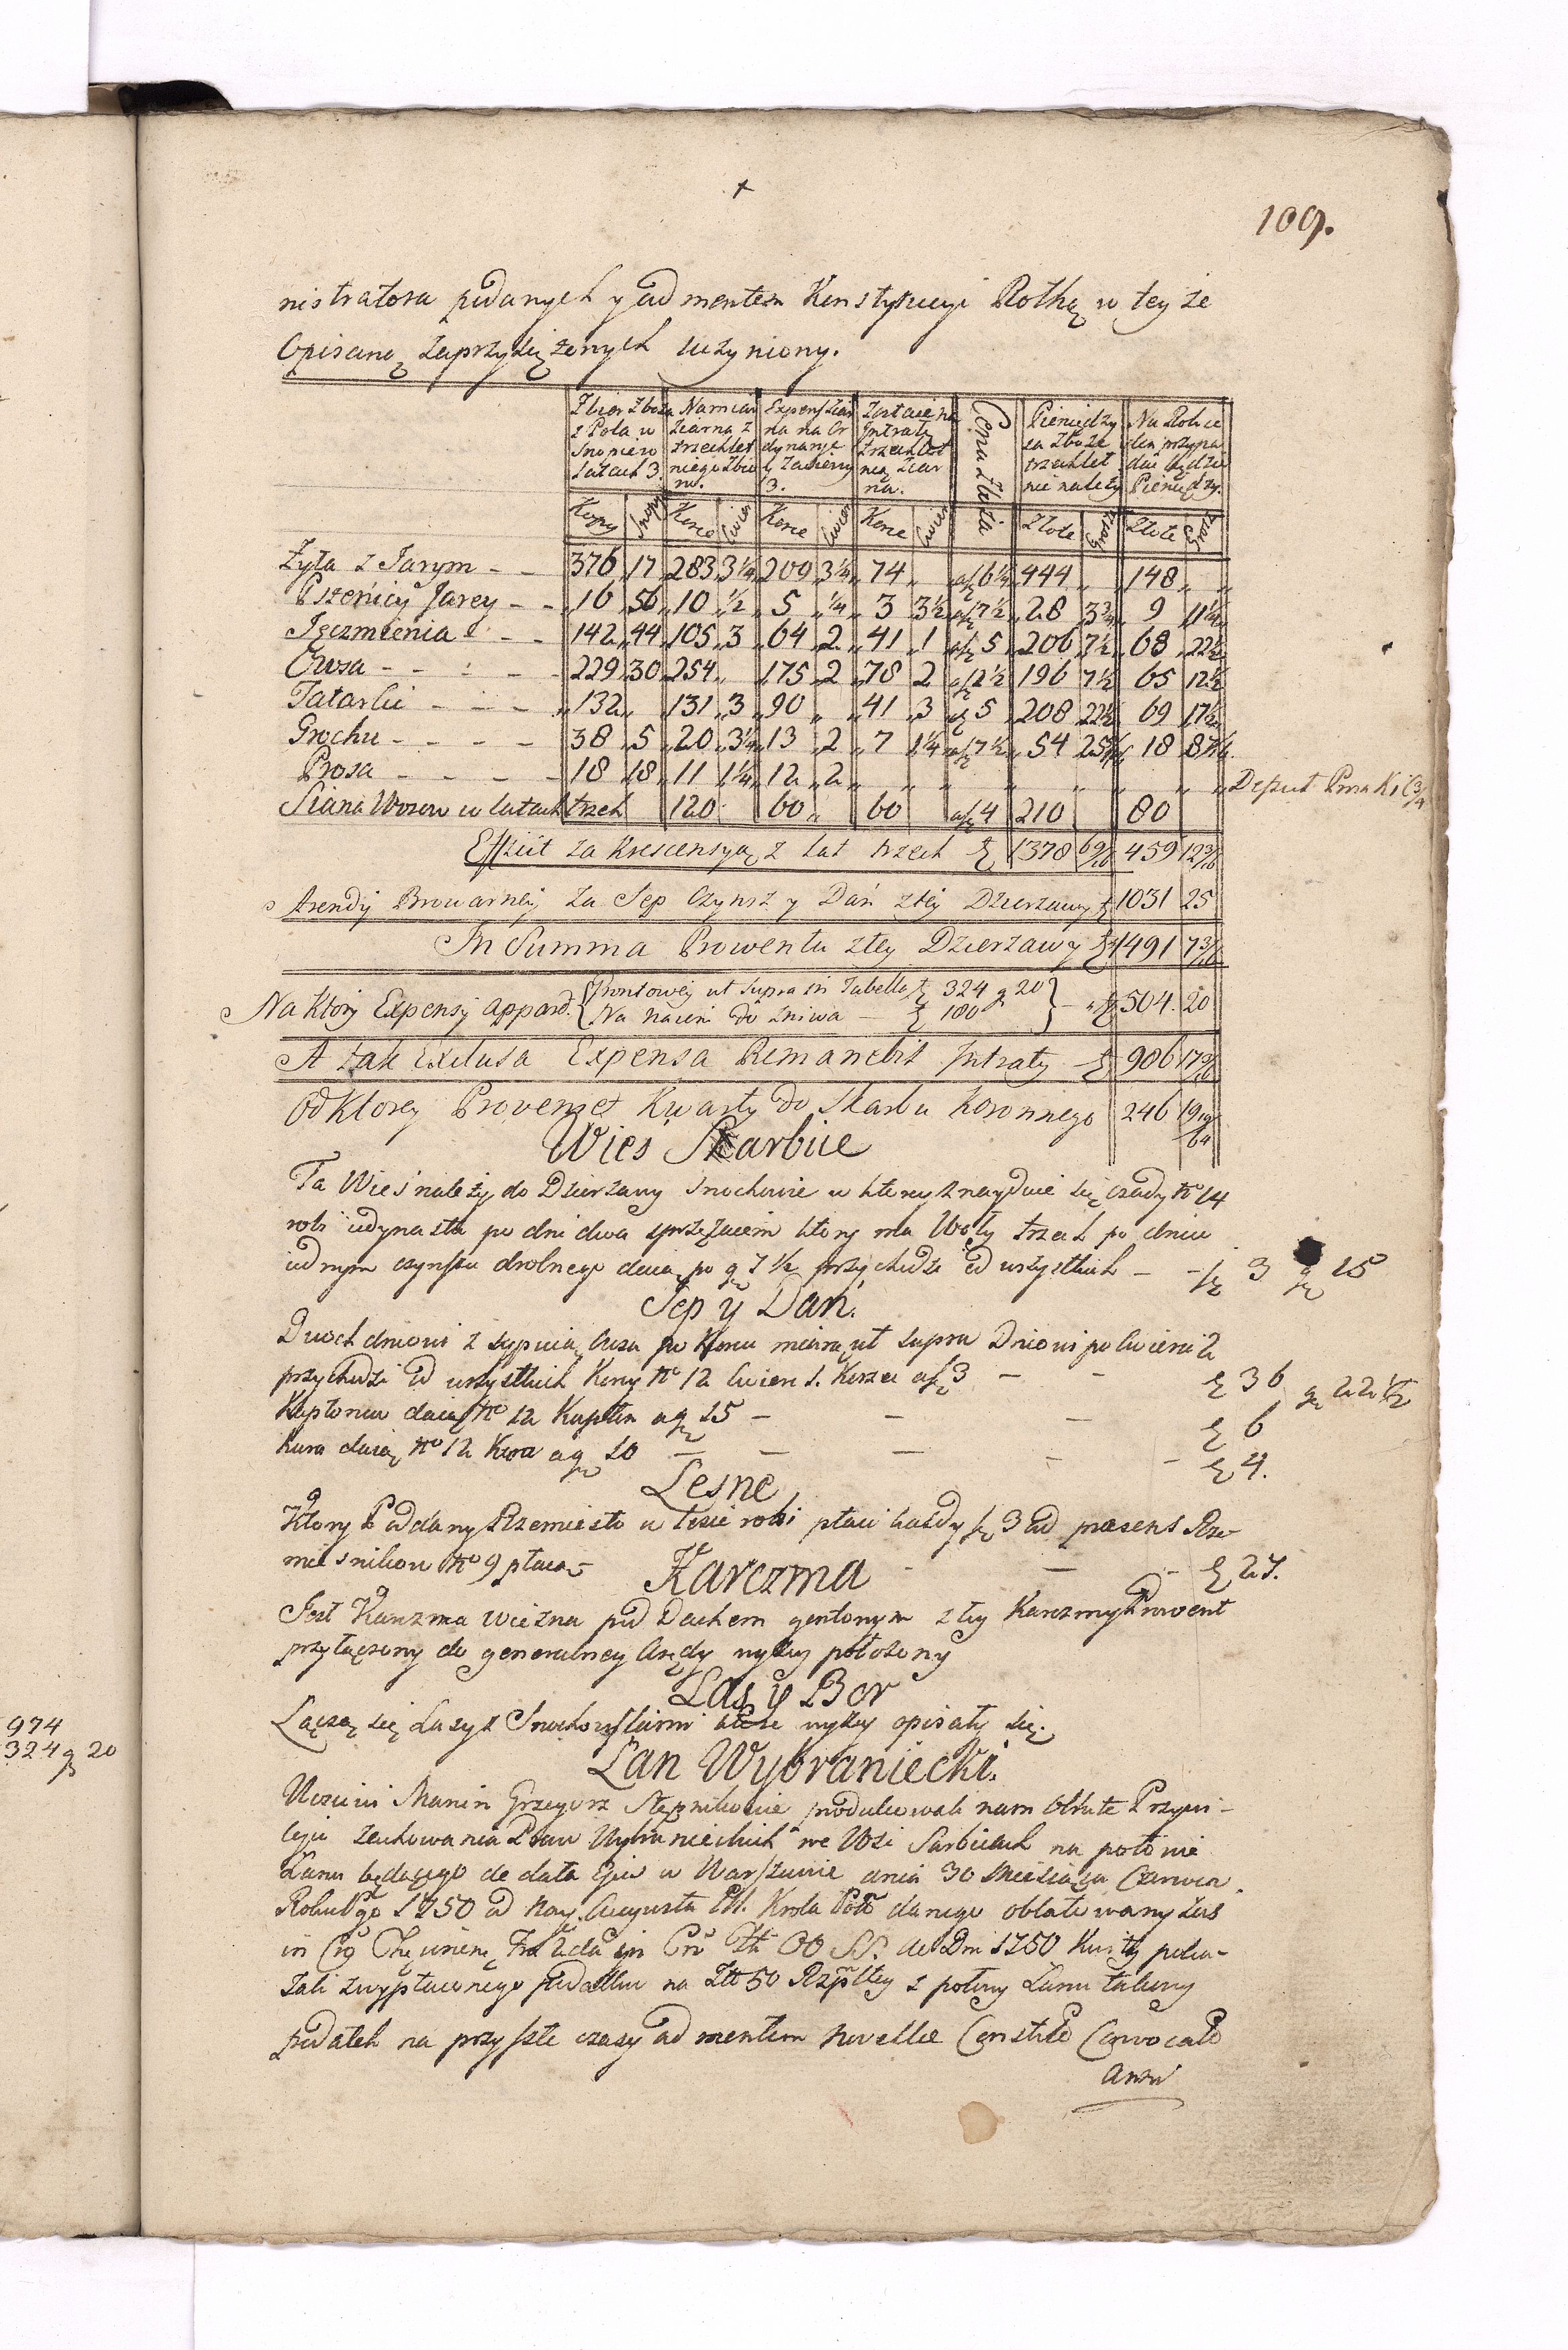 109.
nistratora podanych y ad mentem Konstytucyi Rothą w teyże
Opisaną zaprzysiężonych uczyniony.
Zbior Zboża z Pola w Snopie w Latach 3. | Namiar Ziarna z trzechletniego Zbioru. | Expens Ziarna na Ordynaryę y Zasiewy 3. | Zostaie na Intratę trzechletnią Ziarna. | Cena Zboża | Pieniędzy za Zboże trzechletnie należy | Na Rok ieden przypadać będzie Pieniędzy.
Kopy | Snopy | Korce | Cwier | Korce | Cwier | Korce | Cwier | Złote | Grosze | Złote | Grosze
Żyta z Jarym - - 376 17 283 3¼ 209 3¼ 74 „ af 6¼ 444 „ 148 „
Pszenicy Jarey - - 16 56 10 ½ 5 ¼ 3 3½ af 7½ 28 3¾ 9 11¼
Jęczmienia - - - 142 44 105 3 64 2 41 1 af 5 206 7½ 68 22½
Owsa - - - - 229 30 254 „ 175 2 78 2 af 2½ 196 7½ 65 12½
Tatarki - - - 132 „ 131 3 90 „ 41 3 af 5 208 22½ 69 17½
Grochu - - - - 38 5 20 3¼ 13 2 7 1¼ af 7½ 54 25 18 8
Prosa - - - - 18 18 11 1¼ 12 2 „ „ „ „ „ „ „
Siana Wozow w latach trzech 120 60 „ 60 af 4 210 80
Efficit za Krescensyą z lat trzech 1378 6 9/16 459 12 3/16
Arendy Browarney za Sep Czynsz y Dań z tey Dzierzawy 1031 25
In Summa Prowentu z tey Dzierzawy 1491 7 3/16
Na ktory Expensy appard. Prontowey ut supra in Tabella 324 g 20
Na naiem do żniwa - 180 - 504. 20
A tak Exclusa Expensa Remanebit Intraty - 906 17
Od Ktorey Provenit Kwarty do Skarbu Koronnego 246 19 19/64
Wieś Skarbice
Ta Wieś należy do Dzierzawy Snochowie w ktorey znayduie się czady No 14
robi iedynasta po dni dwa sprzężaiem ktory ma Woły trzech po dniu
iednym czynszu drobnego daią po g 7½ przychodzi od wszystkich - - 3 g 15
Sep y Dań.
Dwoch dniowi z sypuią Owsa po Korcu miarą ut supra Dniowi po Cwierci 2
przychodzi od wszystkich Korcy No 12 Cwierc 1. Korzec af 3 - - 36 g 22½
Kapłonow daią No 12 Kapłon a g 15 - - - 6
Kura daią No 12 Kura a g 10 - - - - - 4.
Lesne
Ktory Poddany Rzemiesło w lesie robi płaci każdy 3 ad præsens Rze-
mieslnikow No 9 płacą - - - - 27.
Karczma
Jest Karczma wiezna pod Dachem gontonym z tey Karczmy Prowent
przyłączony do generalney Arędy wyżey położony
Las y Bor
Łączą się Lasy z Snochowskiemi ktore wyżey opisały się.
Łan Wybraniecki.
Uczciwi Marcin Grzegorz Stępnikowie produkowali nam Oblate Przywi-
leju zachowania Praw Wybranieckich we Wsi Sarbicach na połowie
Łanu będącego de data Ejus w Warszawie dnia 30 Miesiąca Czerwca
Roku Pgo 1750 od Nay. Augusta III. Krola Polo danego oblatowany zas
1750 Kwity poka-
zali z wypłaconego podatku na Złł 50 Rzpltey z połowy Łanu takowy
podatek na przyszłe czasy ad mentem novellæ Constitõ Convocatõ
anni
Deput Prosa Ki
974
324 g 20